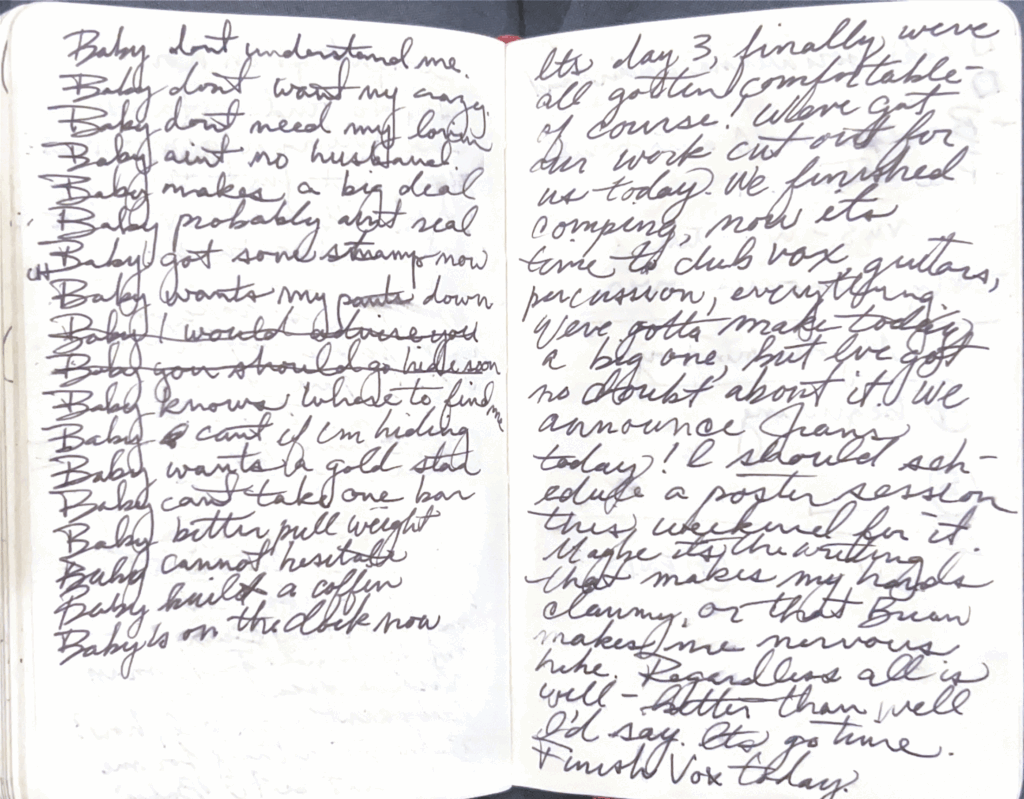 Baby dont understand me.
Baby dont want my crazy
Baby dont need my lovin
Baby aint no husband.
Baby makes a big deal
Baby probably aint real
Baby got some stamp now
Baby wants my pants down
Baby I would advise you
Baby you should go hide soon
Baby knows whose to find me
Baby cant if im hiding
Baby wants a gold star
Baby cant take one bar
Baby better pull weight
Baby cannot hesitate
Baby built a coffin
Baby is on the clock now
Its day 3 finally weve
all gotten comfortable-
of course! Weve got
our work cut out for
us today. We finished
comping, now its
time to dub vox guitars,
percussion, everything.
Weve gotta make today
a big one, but Ive got
no doubt about it. We
announce
today! I should sch-
edule a poster session
this weekend for it.
Maybe its the writing
that makes my hands
clammy, or that Brian
makes me nervous
hehe. Regardless all is
well - better than well
I'd say. Its go time.
Finish Vox today.